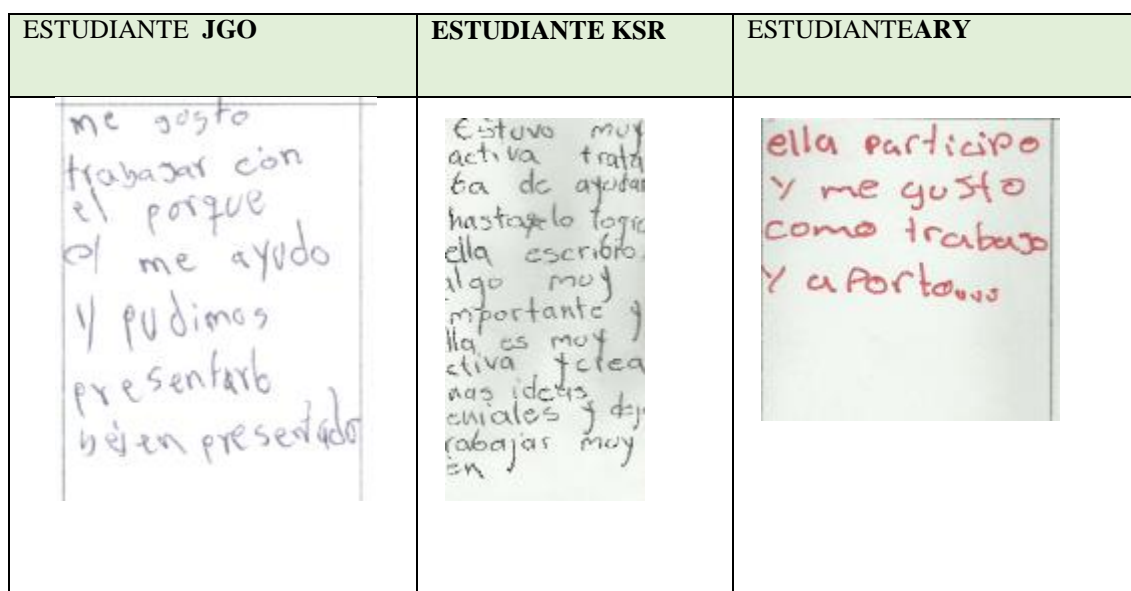 ESTUDIANTE JGO
ESTUDIANTE KSR
ESTUDIANTEARY
me gosto
trabajar con
el porque
el me ayudo
y pudimos
presentarlo
bien presentado
Estuvo muy
activa trata
ba de ayudar
hasta lo logro
ella escribio
algo muy
mportante y
lla es muy
ctiva y crea
nas ideas
eniales y dej
rabajar muy
en
ella participo
y me gusto
como trabajo
y aporto...